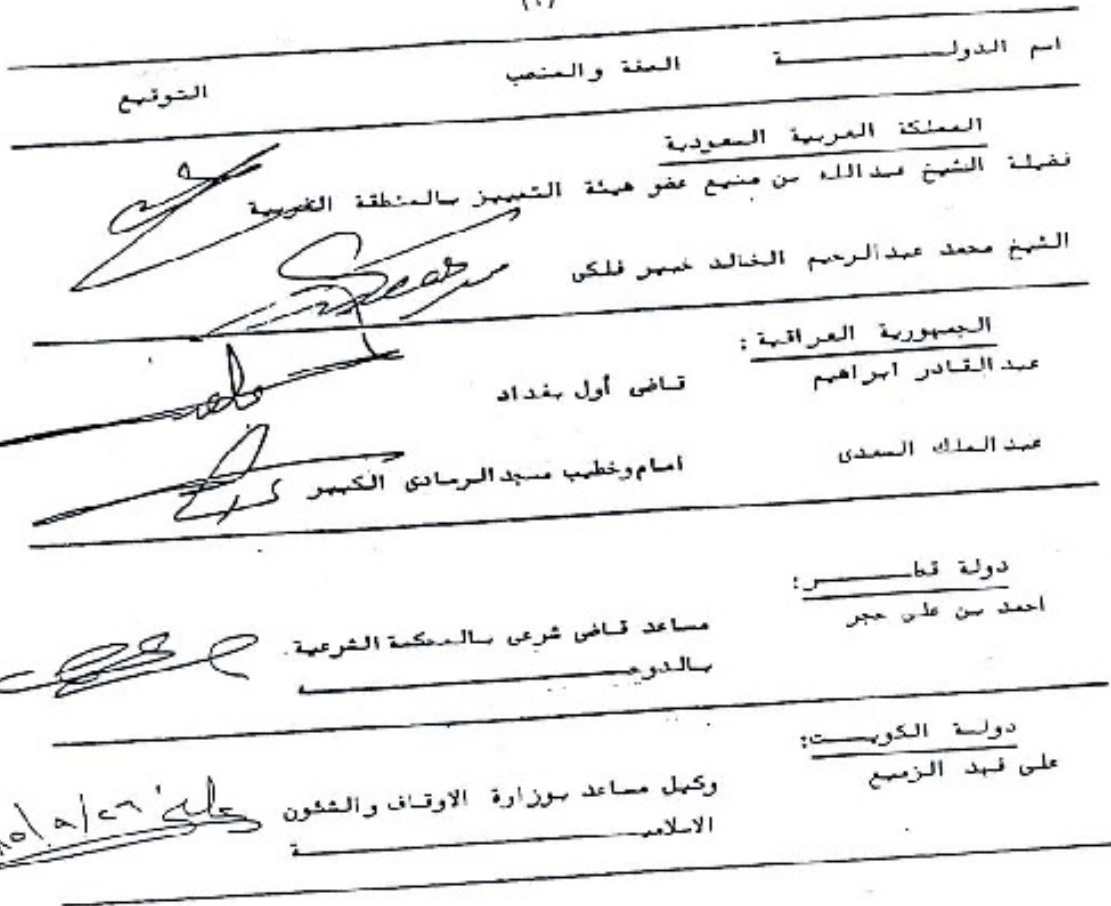 اسم الدولـــــــــة الصفة والمنصب التوقيع
المملكة العربية السعودية
فضيلة الشيخ عبدالله بن منيع عضو هيئة التمييز بالمنطقة الغربية
الشيخ محمد عبدالرحيم الخالد خبير فلكى
الجمهورية العراقية :
عبدالقادر ابراهيم قاضى أول بغداد
عبدالملك السعدى امام وخطيب مسجد الرمادى الكبير
دولة قطـــــــر:
احمد بن على حجر مساعد قاضى شرعى بالمحكمة الشرعية
بالدوحـــــــــــــــــة
دولــة الكويـــــت:
على فهد الزميع وكيل مساعد بوزارة الاوقاف والشئون
الاسلاميـــــــــــــة